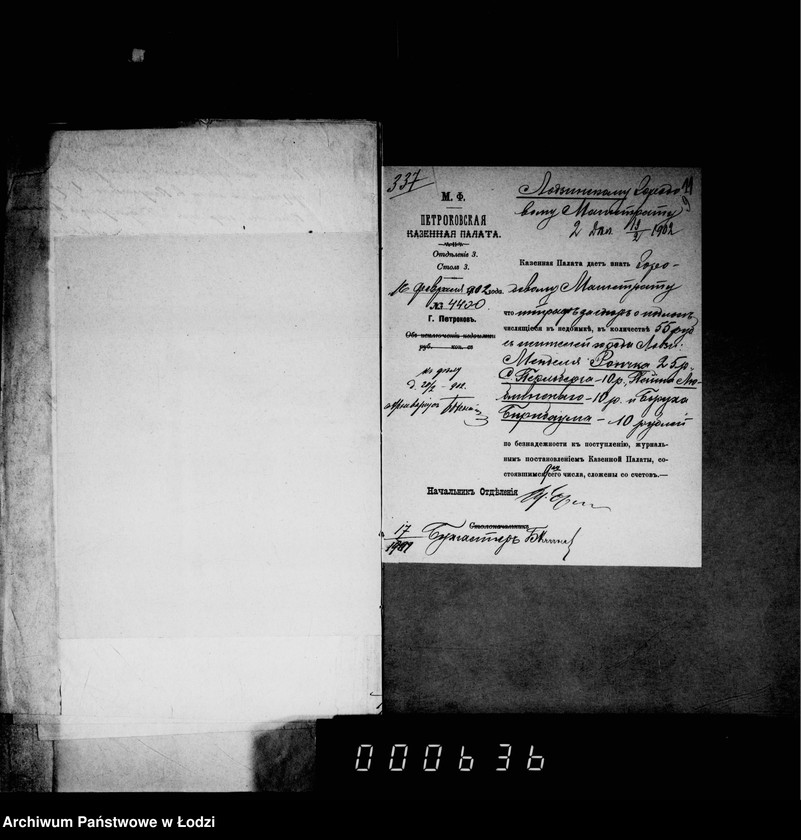 337
М. Ф.
ПЕТРОКОВСКАЯ
КАЗЕННАЯ ПАЛАТА.
Отдѣленіе 3.
Столъ 3.
16 февраля 1902 года.
№ 4400
Г. Петроковъ.
Объ исключеніи недоимки
руб. коп. съ
къ дѣлу
Лодзинскому Городо-
вому Магистрату
1902
Казенная Палата даетъ знать Горо-
довому Магистрату
что штрафъ за
числящіеся въ недоимкѣ, въ количествѣ 55 руб
съ жителей города Лодзи:
Менделя 25 р.
С. Перльберга - 10 р.,
- 10 р. и Боруха
Бирнбаума - 10 рублей
по безнадежности къ поступленію, журналь-
нымъ постановленіемъ Казенной Палаты, со-
стоявшимся сего числа, сложены со счетовъ.—
Начальникъ Отдѣленія
Столоначальникъ
17
Бухгалтеръ
000636
Archiwum Państwowe w Łodzi